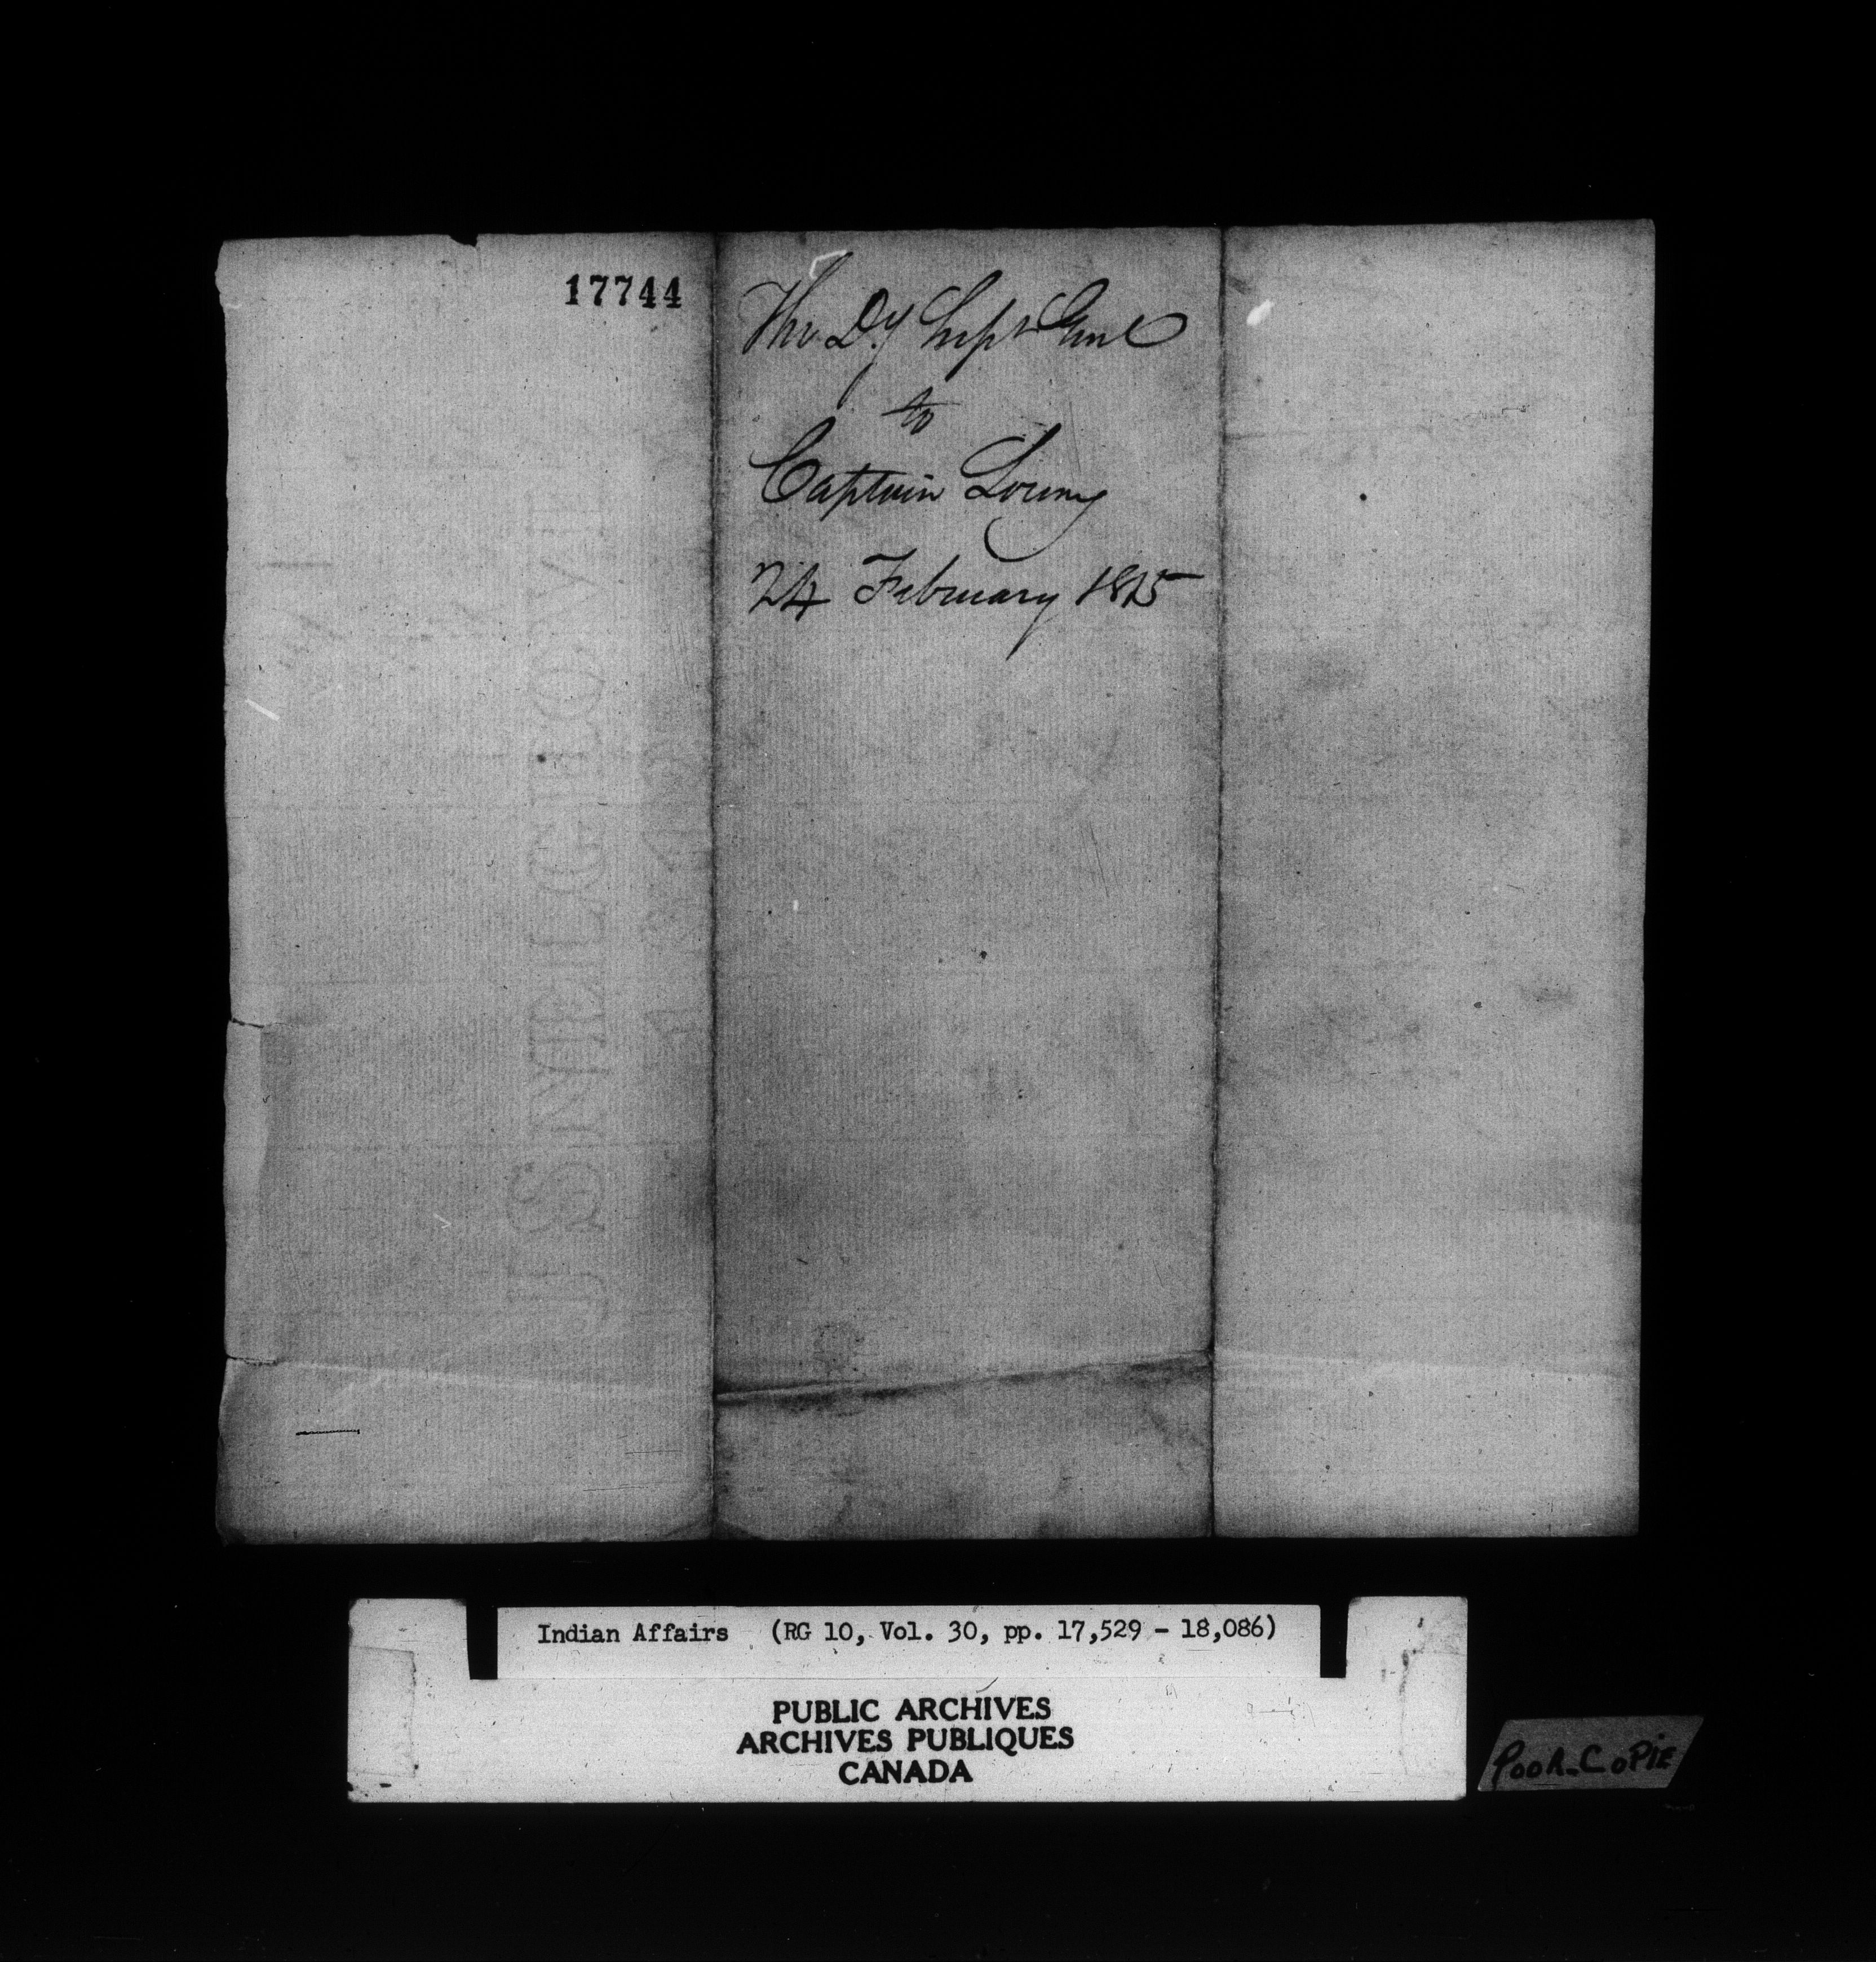 17744
The Dy Supt Genl
to
Captain Loring
24 February 1815
Indian Affairs (RG 10, Vol. 30, pp. 17,529 - 18,086)
PUBLIC ARCHIVES
ARCHIVES PUBLIQUES
CANADA
POOR-COPIE